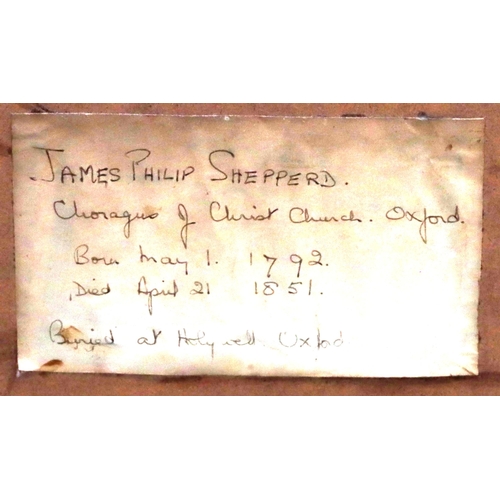 JAMES PHILIP SHEPPERD.
Choragus of Christ Church. Oxford.
Born May 1. 1792.
Died April 21 1851.
Buried at Holywell Oxford